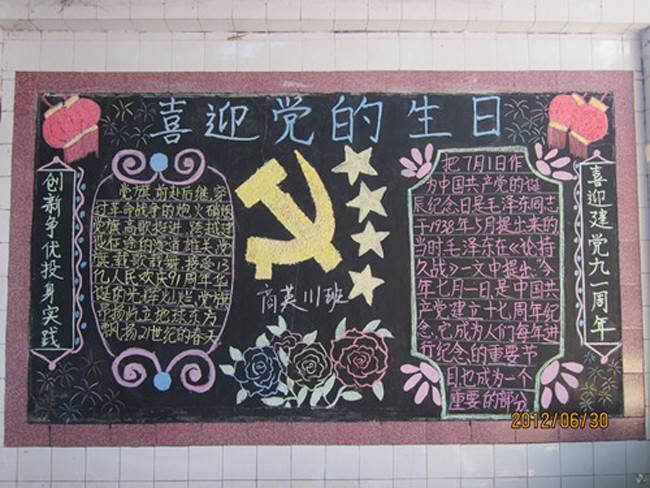 喜迎党的生日
创新争优投身实践
党旗前赴后继,穿
过革命战争的炮火硝烟
党旗高歌挺进,跨越社
现征途的
旗载歌载舞接受13
亿人民欢庆91周年华
诞的光辉灿烂,党旗
屹立地球东方
飘扬21世纪的春天
商英川班
把7月1日作
为中国共产党的诞
辰纪念日是毛泽东同志
于1938年5月提出来的,
当时毛泽东在《论持
久战》一文中提出"今
年七月一日,是中国共
产党建立十七周年纪
念,它成为人们每年进
行纪念的重要节
日也成为一个
重要的部分
喜迎建党九一周年
2012/06/30